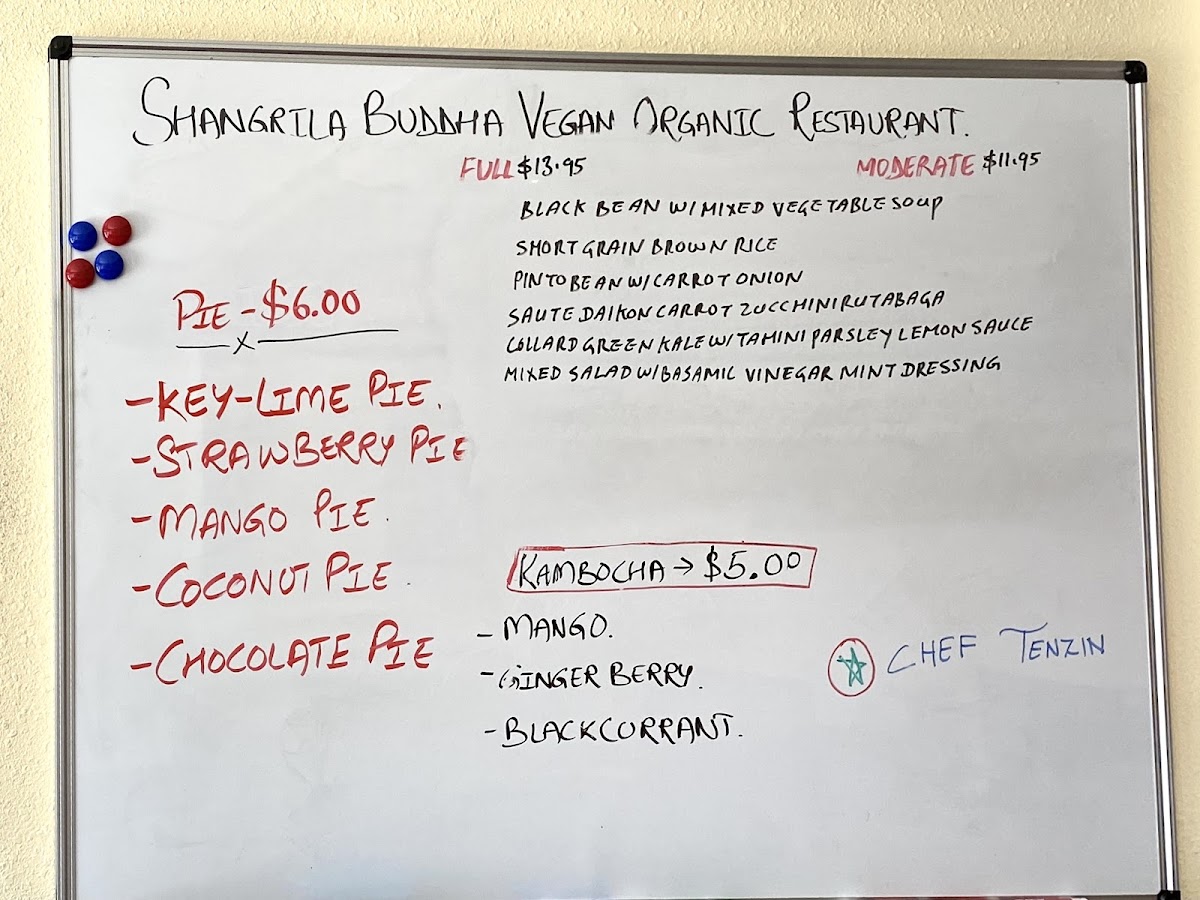 SHANGRILA BUDDHA VEGAN ORGANIC RESTAURANT.
FULL $13.95 MODERATE $11.95
BLACK BEAN W/MIXED VEGETABLE SOUP
SHORT GRAIN BROWN RICE
PINTO BEAN W/CARROT ONION
SAUTE DAIKON CARROT ZUCCHINI RUTABAGA
COLLARD GREEN KALE W/TAMINI PARSLEY LEMON SAUCE
MIXED SALAD W/BASAMIC VINEGAR MINT DRESSING
PIE - $6.00
-KEY-LIME PIE.
-STRAWBERRY PIE
-MANGO PIE.
-COCONUT PIE.
-CHOCOLATE PIE
KAMBOCHA → $5.00
- MANGO.
- GINGER BERRY.
- BLACKCURRANT.
CHEF TENZIN